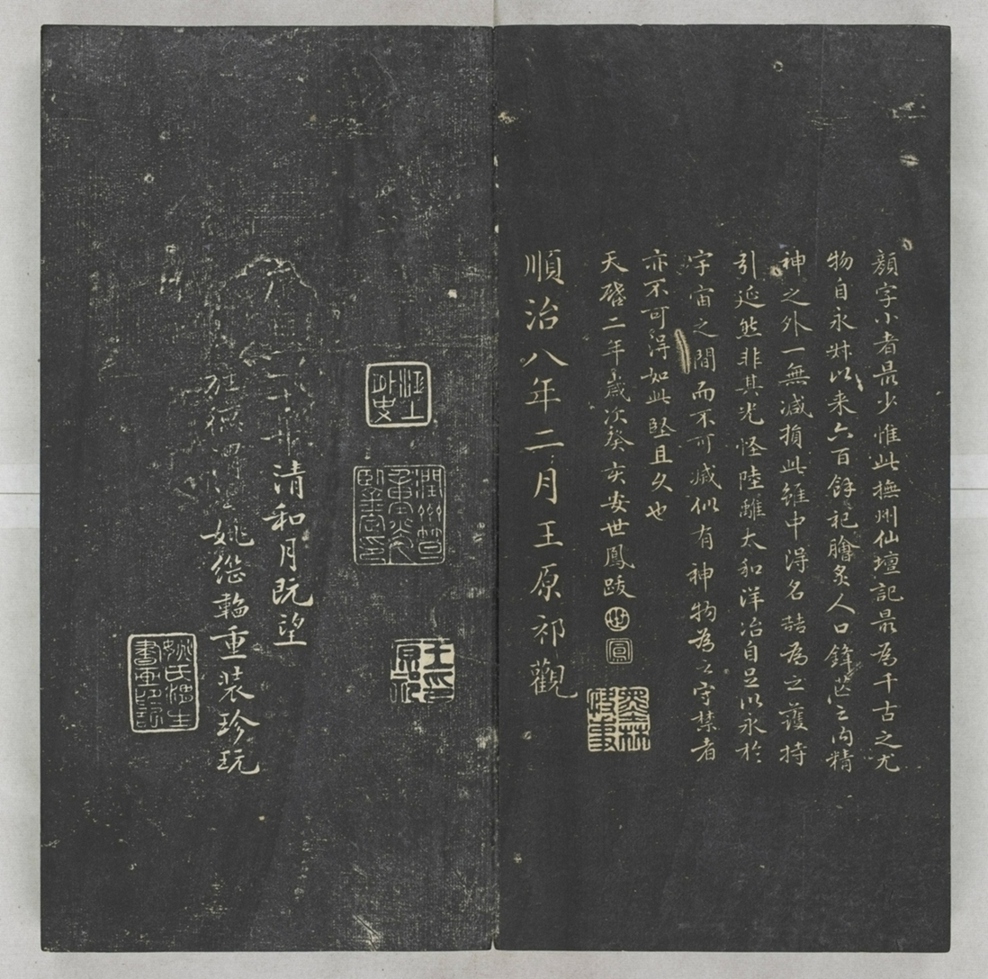 顏字小者最少惟此撫州仙壇記最為千古之尤
物自永姝以来六百餘祀膾炙人口鋒芒之內精
神之外一無減損此雖中得名喆為之護持
引延然非其光怪陸離太和洋冶自足以永於
宇宙之間而不可滅似有神物為之守禁者
亦不可得如此堅且久也
天啓二年歲次癸亥安世鳳跋
世
鳳
墨林
快事
順治八年二月王原祁觀
江上
外史
王原
祁印
清和月既望
姚繼䡄重裝珍玩